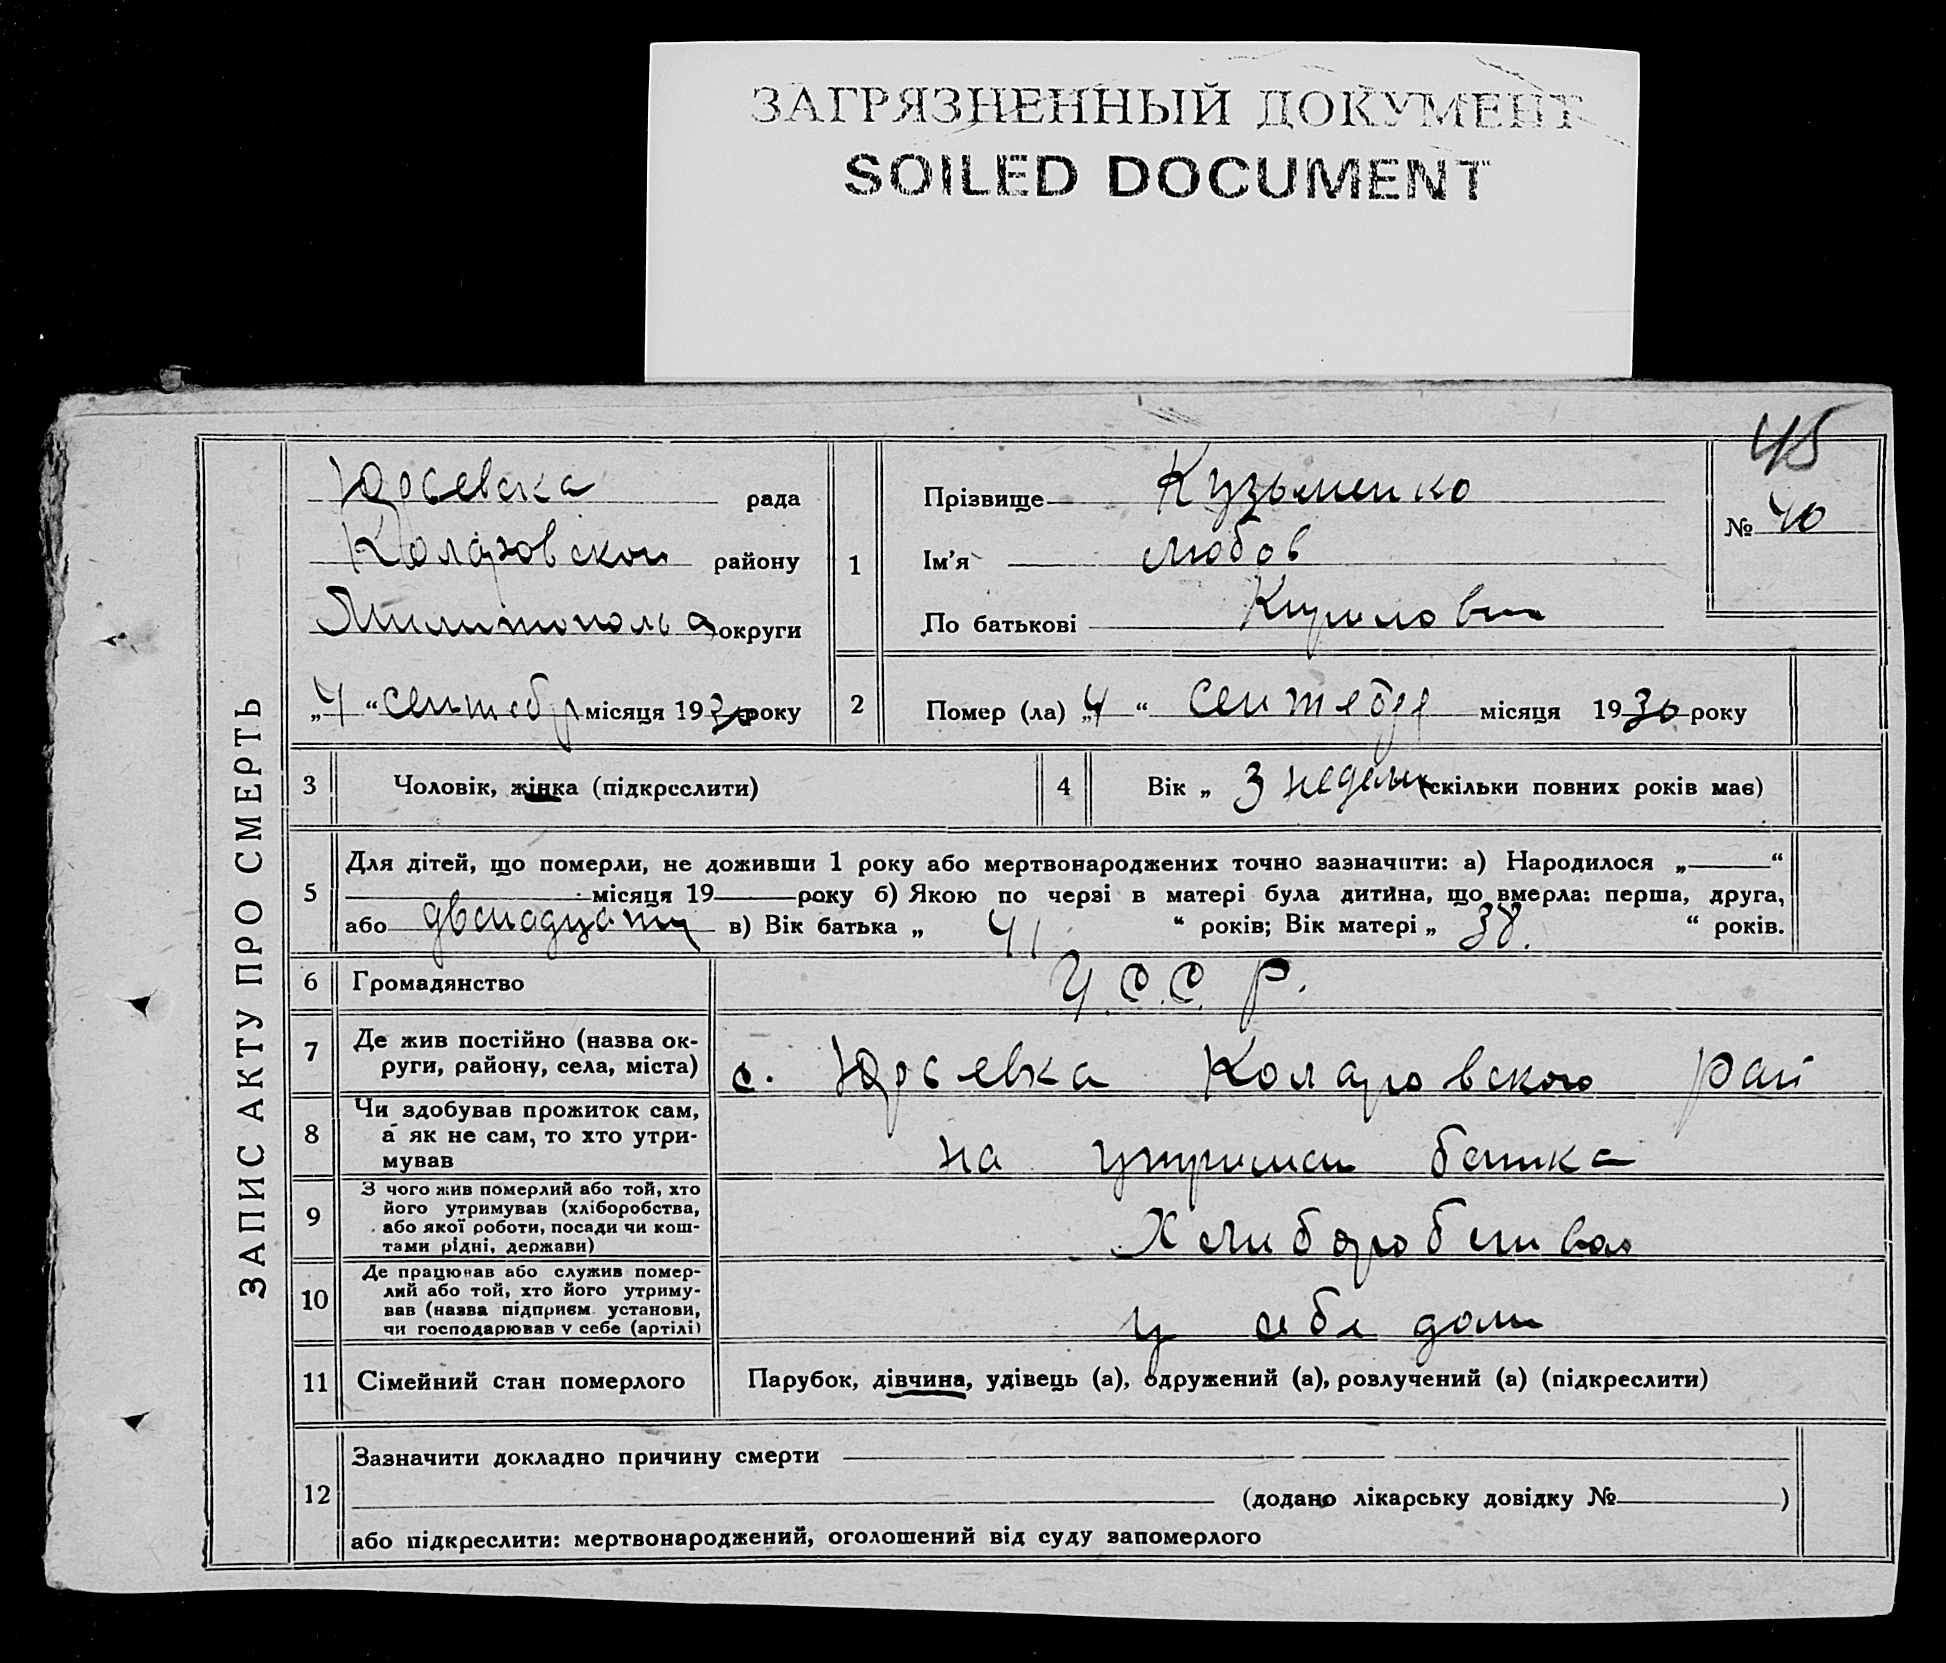 ЗАГРЯЗНЕННЫЙ ДОКУМЕНТ
SOILED DOCUMENT
45
ЗАПИС АКТУ ПРО СМЕРТЬ
Юрьевска рада
Коларовской району
Милитополь округи
„4“ сентебр місяця 1930 року
1
Прізвище Кузьменко
Ім'я Любов
По батькові Кириловна
№ 40
2
Помер (ла) „4“ сентебре місяця 1930 року
3 Чоловік, жінка (підкреслити)
4 Вік „ 3 недели (скільки повних років має)
5
Для дітей, що померли, не доживши 1 року або мертвонароджених точно зазначити: а) Народилося „ “
місяця 19 року б) Якою по черзі в матері була дитина, що вмерла: перша, друга,
або двенадцаты в) Вік батька „ 41 “ років; Вік матері „ 38. “ років.
6 Громадянство У.С.С.Р.
7 Де жив постійно (назва ок-
руги, району, села, міста)
с. Юрьевка Коларовского рай
8 Чи здобував прожиток сам,
а як не сам, то хто утри-
мував
на утриман батька
9 З чого жив померлий або той, хто
його утримував (хліборобства,
або якої роботи, посади чи кош-
тами рідні, держави)
Хлиборобство
10 Де працював або служив помер-
лий або той, хто його утриму-
вав (назва підприєм. установи,
чи господарював у себе (артілі)
у себе дома
11 Сімейний стан померлого
Парубок, дівчина, удівець (а), одружений (а), розлучений (а) (підкреслити)
12
Зазначити докладно причину смерти
(додано лікарську довідку № )
або підкреслити: мертвонароджений, оголошений від суду запомерлого